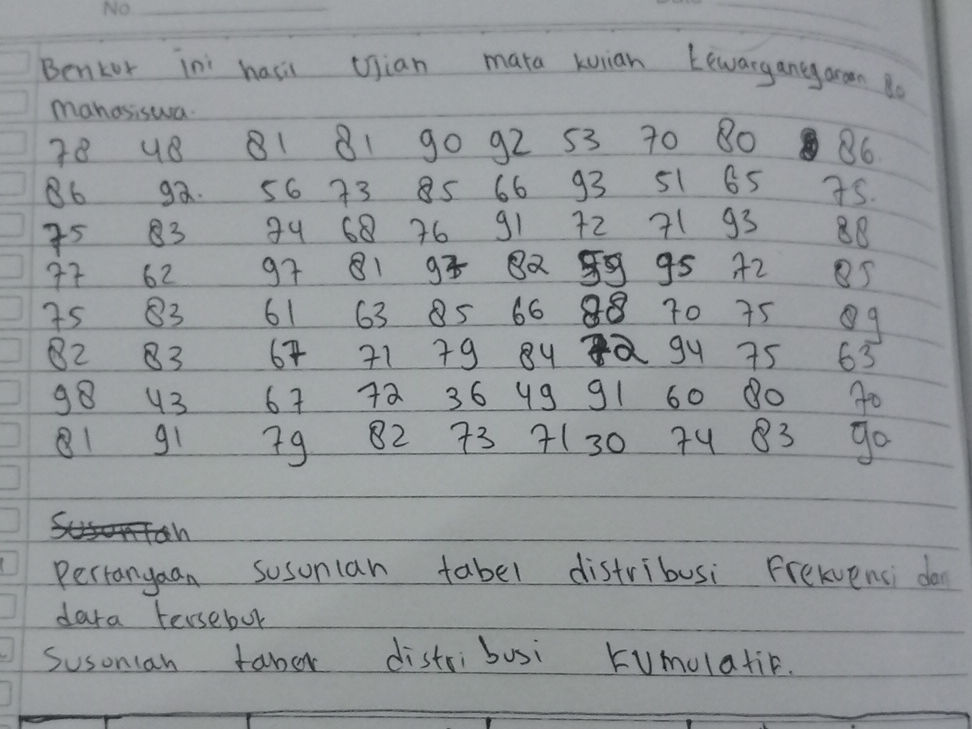 No
Berikut ini hasil Ujian mata kuliah kewarganegaraan 80
mahasiswa.
78 48 81 81 90 92 53 70 80 86.
86 92. 56 73 85 66 93 51 65 75.
75 83 74 68 76 91 72 71 93 88
77 62 97 81 97 82 99 95 72 85
75 83 61 63 85 66 88 70 75 89
82 83 67 71 79 84 72 94 75 63
98 43 67 72 36 49 91 60 80 70
81 91 79 82 73 71 30 74 83 90
Susunlah
Pertanyaan susunlah tabel distribusi Frekuensi dari
data tersebut
Susunlah tabel distribusi kumulatif.